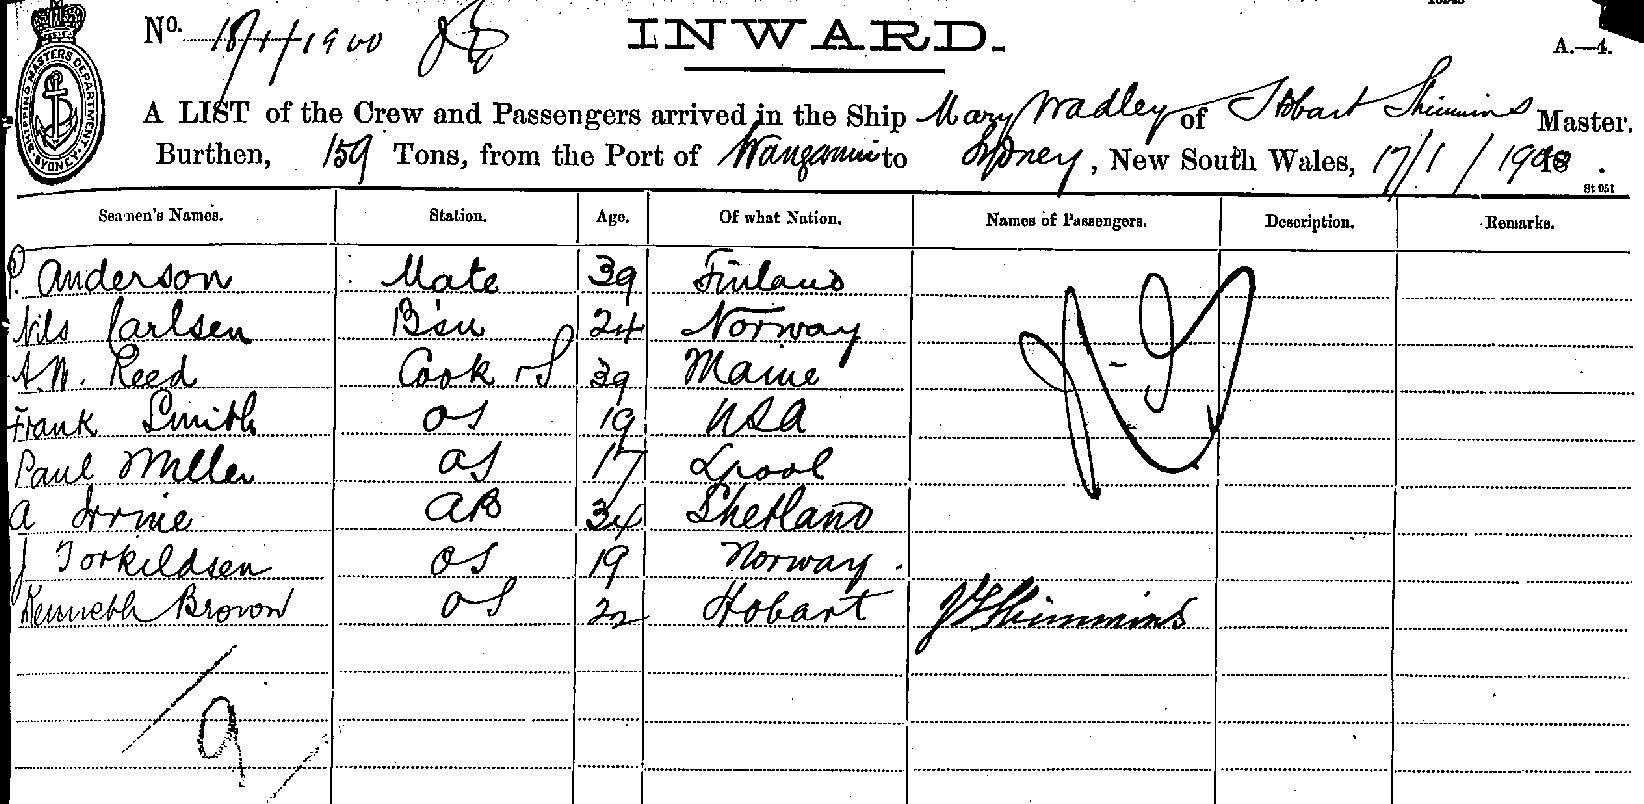 No. 18/1/1900
INWARD.
A.—4.
SHIPPING MASTERS DEPARTMENT SYDNEY
A LIST of the Crew and Passengers arrived in the Ship Mary Wadley of Hobart Shimmins Master.
Burthen, 159 Tons, from the Port of Wanganui to Sydney, New South Wales, 17/1/1900.
St 051
Seamen's Names. Station. Age. Of what Nation. Names of Passengers. Description. Remarks.
P. Anderson Mate 39 Finland
Nils Carlsen B'sn 24 Norway
A.W. Reed Cook 39 Maine
Frank Smith OS 19 USA
Paul Miller OS 17 Lpool
A Irvine AB 34 Shetland
J Torkildsen OS 19 Norway.
Kenneth Brown OS 22 Hobart Shimmins
9